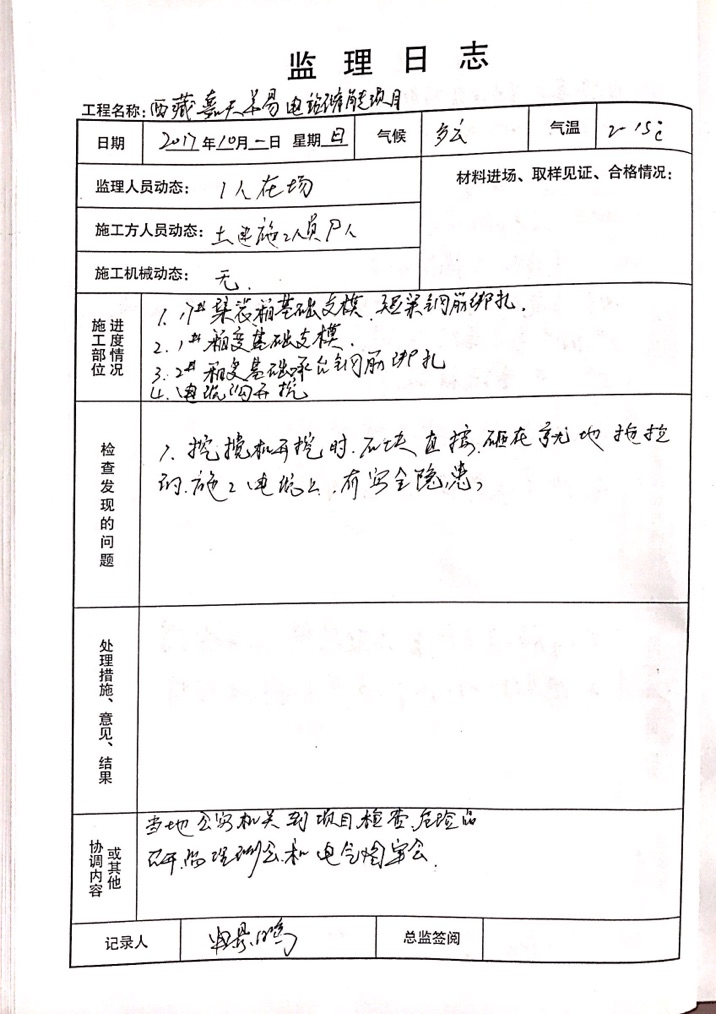 监理日志
工程名称: 西藏嘉天 易电站储能项目
日期 2017年10月一日 星期日 气候 多云 气温 2-15℃
监理人员动态: 1人在场
材料进场、取样见证、合格情况:
施工方人员动态: 土建施工人员 人
施工机械动态: 无.
施工部位
进度情况
1. 1#集装箱基础支模、短梁钢筋绑扎.
2. 1#箱变基础支模.
3. 2#箱变基础承台钢筋绑扎
4. 电缆沟开挖
检查发现的问题
1. 挖搅机开挖时.石块直接.砸在就地拖拉
的.施工电缆上.有安全隐患,
处理措施、意见、结果
协调内容
或其他
当地公安机关到项目检查危险品
召开监理例会和电气 会.
记录人
总监签阅